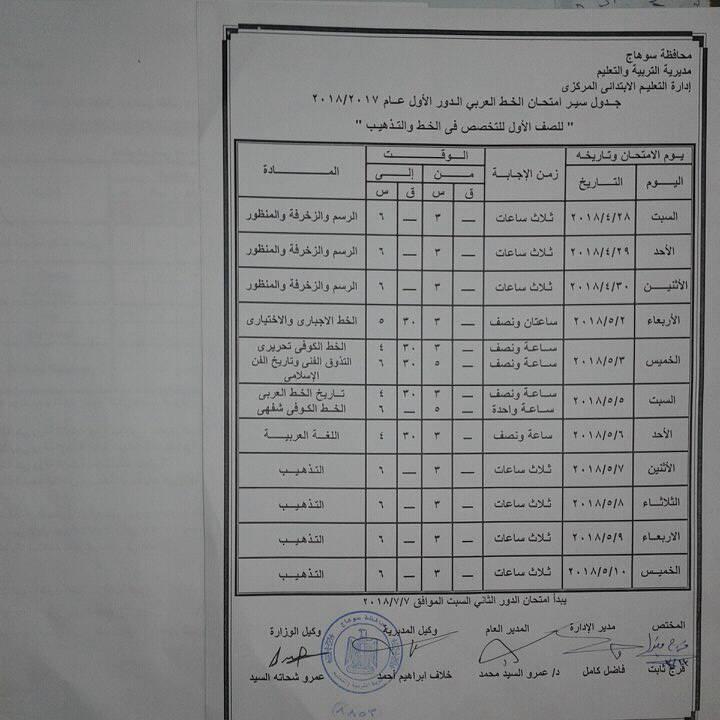 محافظة سوهاج
مديرية التربية والتعليم
إدارة التعليم الابتدائى المركزى
جدول سير امتحان الخط العربي الدور الأول عام ٢٠١٨/٢٠١٧
" للصف الأول للتخصص فى الخط والتذهيب "
يوم الامتحان وتاريخه زمن الإجابة الوقت المادة
اليوم التاريخ من إلى
ق س ق س
السبت ٢٠١٨/٤/٢٨ ثلاث ساعات — ٣ — ٦ الرسم والزخرفة والمنظور
الأحد ٢٠١٨/٤/٢٩ ثلاث ساعات — ٣ — ٦ الرسم والزخرفة والمنظور
الأثنين ٢٠١٨/٤/٣٠ ثلاث ساعات — ٣ — ٦ الرسم والزخرفة والمنظور
الأربعاء ٢٠١٨/٥/٢ ساعتان ونصف — ٣ ٣٠ ٥ الخط الاجبارى والاختيارى
الخميس ٢٠١٨/٥/٣ ساعة ونصف — ٣ ٣٠ ٤ الخط الكوفى تحريرى
ساعة ونصف — ٥ ٣٠ ٦ التذوق الفنى وتاريخ الفن
الإسلامى
السبت ٢٠١٨/٥/٥ ساعة ونصف — ٣ ٣٠ ٤ تاريخ الخط العربى
ساعة واحدة — ٥ — ٦ الخط الكوفى شفهى
الأحد ٢٠١٨/٥/٦ ساعة ونصف — ٣ ٣٠ ٤ اللغة العربية
الأثنين ٢٠١٨/٥/٧ ثلاث ساعات — ٣ — ٦ التذهيب
الثلاثاء ٢٠١٨/٥/٨ ثلاث ساعات — ٣ — ٦ التذهيب
الاربعاء ٢٠١٨/٥/٩ ثلاث ساعات — ٣ — ٦ التذهيب
الخميس ٢٠١٨/٥/١٠ ثلاث ساعات — ٣ — ٦ التذهيب
يبدأ امتحان الدور الثاني السبت الموافق ٢٠١٨/٧/٧
المختص مدير الإدارة المدير العام وكيل المديرية وكيل الوزارة
فرج ثابت فاضل كامل د/ عمرو السيد محمد خلاف ابراهيم أحمد عمرو شحاته السيد